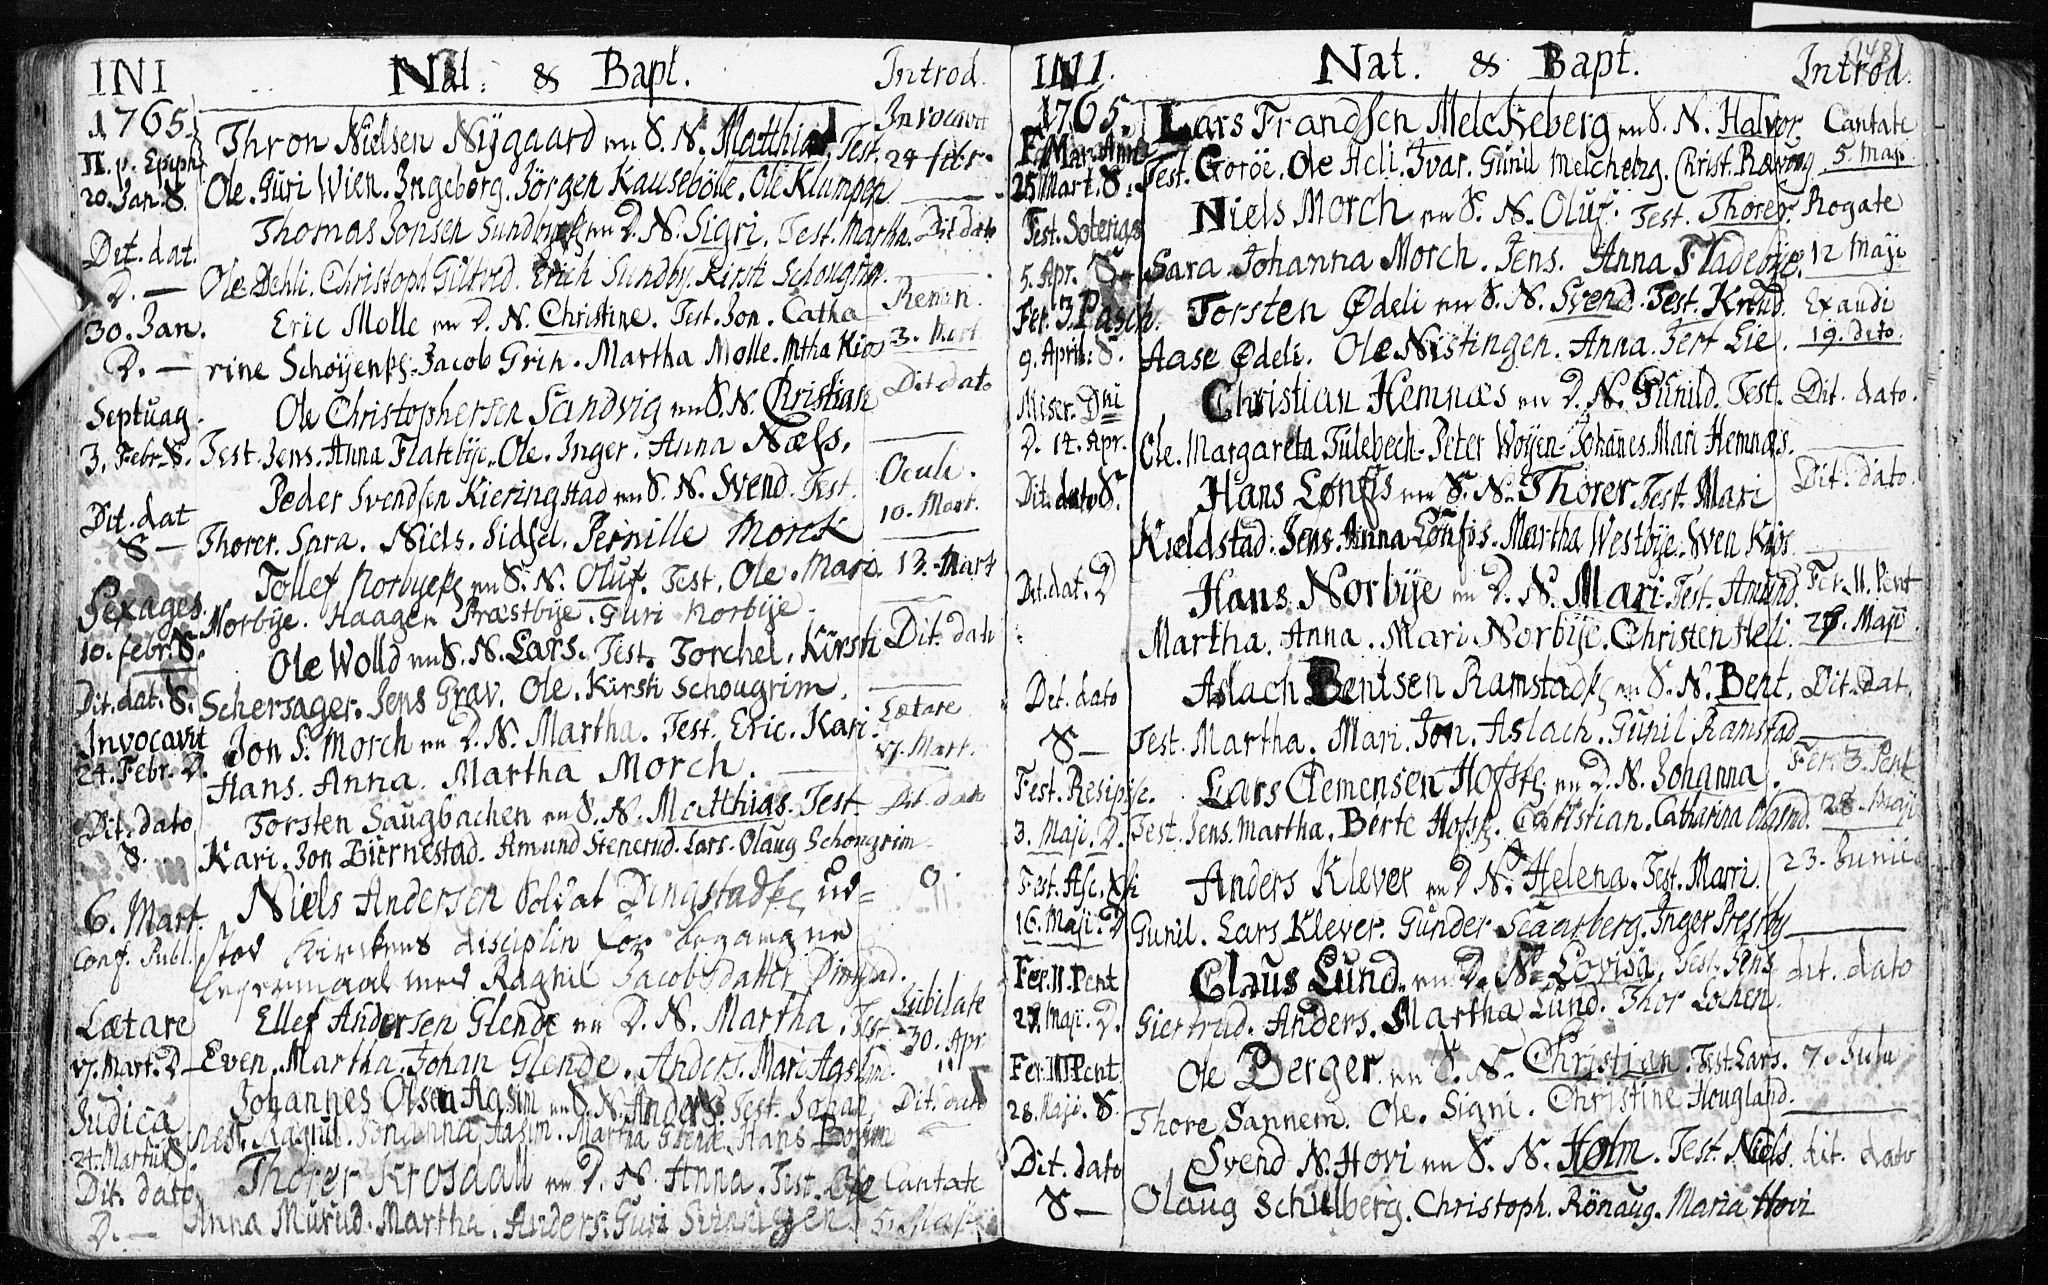 INI Nat: & Bapt. Introd.
1765. Thron Nielsen Nÿgaard en S. N. Matthias. Test. Invocavit
II. p. Epiph. 24 febr.
20. Jan. S. Ole. Guri Wien. Ingeborg. Jörgen Kausebölle. Ole Klumpen
Thomas Jonsen Sundbye en D. N. Sigri. Test. Martha. Dit dato
Det. dat. D. — Ole Dehli. Christoph Giltved. Erich Sundby. Kirsti Schougrim.
30. Jan. Eric Molle en D. N. Christine. Test. Jon. Catha Remin.
D. — rine Schoÿen. Jacob Grin. Martha Molle. Mtha Kios 3. Mart.
Septuag. Ole Christophersen Sandvig en S. N. Christian Dit dato
3. Febr. S. Test. Jens. Anna Flatebÿe. Ole. Inger. Anna Næss.
Peder Svendsen Kieringstad en S. N. Svend. Test. Oculi.
Dit. dat S — Thorer. Sara. Niels. Sidsel. Pernille Morck 10. Mart.
Tollef Norbÿe en S. N. Oluf. Test. Ole. Mari. 13. Mart
Sexages. Norbÿe. Haagen Præstbÿe. Guri Norbÿe.
10. febr. S. Ole Wolld en S. N. Lars. Test. Torchel. Kirsti Dit. dato
Dit. dat. S. Schersager. Jens Grav. Ole. Kirsti Schougrim.
Invocavit Jon S. Morch en D. N. Martha. Test. Eric. Kari. Lætare
24. Febr. D. Hans. Anna. Martha Morch. 17. Mart.
Dit. dato Torsten Saugbachen en S. N. Matthias. Test. Dit. dato
S. Kari. Jon Biernestad. Amund Stenerud. Lars. Olaug Schougrim.
6. Mart. Niels Andersen Soldat Dingstad ud= 0.
Conf. Publ. stod Kirckens disciplin for begangne
leyermaal med Ragnil Jacobsdatter Dingstad.
Lætare Ellef Andersen Glende en D. N. Martha. Test Jubilate
17. Mart. D — Even. Martha. Johan Glende. Anders. Mari Aasim. 30. Apr
Judica Johannes Olsen Aasim en S. N. Anders. Test. Johan. Dit. dato
24. Martii S. Ragnil. Johanna Aasim. Martha Glende. Hans
Dit. dato Thorer Krosdall en D. N. Anna. Test. Ole Cantate
D. — Anna Murud. Martha. Anders. Guri 5. Maji
INI. Nat. & Bapt. Introd. (148)
1765. Lars Frandsen Melckeberg en S. N. Halvor. Cantate
F. Mar. Ann 5. Maji
25 Mart. S. Test. Goröe. Ole Heli. Ivar. Gunil Melcheberg. Christ. Rævoug
Fest. Soterias Niels Morch en S. N. Oluf. Test. Thorer. Rogate
5. Apr. S. — Sara. Johanna Morch. Jens. Anna Fladebÿe. 12 Maji
Fer. 3. Pasch. Torsten Ødeli en S. N. Svend. Test. Knud. Exaudi
9. April. S. Aase Ødeli. Ole Nistingen. Anna. Gert Lie. 19. dito
Miser. Dni Christian Hemnæs en D. N. Gunild. Test. Dit. dato.
D. 14. Apr. Ole. Margareta Fulebech. Peter Woÿen. Johanes. Mari Hemnæs.
Dit. dato S. Hans Lonfs en S. N. Thorer. Test. Mari Dit. dato.
Kieldstad. Jens. Anna Lonfs. Martha Westbÿe. Sven Kios
Dit. dat. D Hans Norbÿe en D. N. Mari. Test. Amund. Fer. II. Pent
Martha. Anna. Mari Norbÿe. Christen Heli. 27. Maji
Det. dato Aslach Bentsen Ramstad en S. N. Bent. Dit. dat.
S — Test. Martha. Mari. Jon. Aslach. Gunil Ramstad
Fest. Resipise. Lars Clemensen Hofs en D. N. Johanna. Fer. 3. Pent
3. Maji. D. Test. Jens. Martha. Berte Hofs. Christian. Catharina 28. Maji
Fest. Asc. Xsti Anders Klever en D N. Helena. Test. Marri. 23. Junii
16. Maji. D Gunil. Lars Klever. Gunder Scaarberg. Inger Presby
Fer. II. Pent Claus Lund. en D. N. Lovisa. Test. Jens dit. dato
27. Maji. D. Giertrud. Anders. Martha Lund. Thor Lochen.
Fer. III Pent. Ole Berger en S. N. Christian. Test. Lars. 7. Julii
28. Maji. S. Thore Sannem. Ole. Signi. Christine Hougland.
Dit. dato Svend N. Hovi en S. N. Holm. Test. Niels. dit. dato
S — Olaug Schulberg. Christoph. Rönaug. Maria Hovi